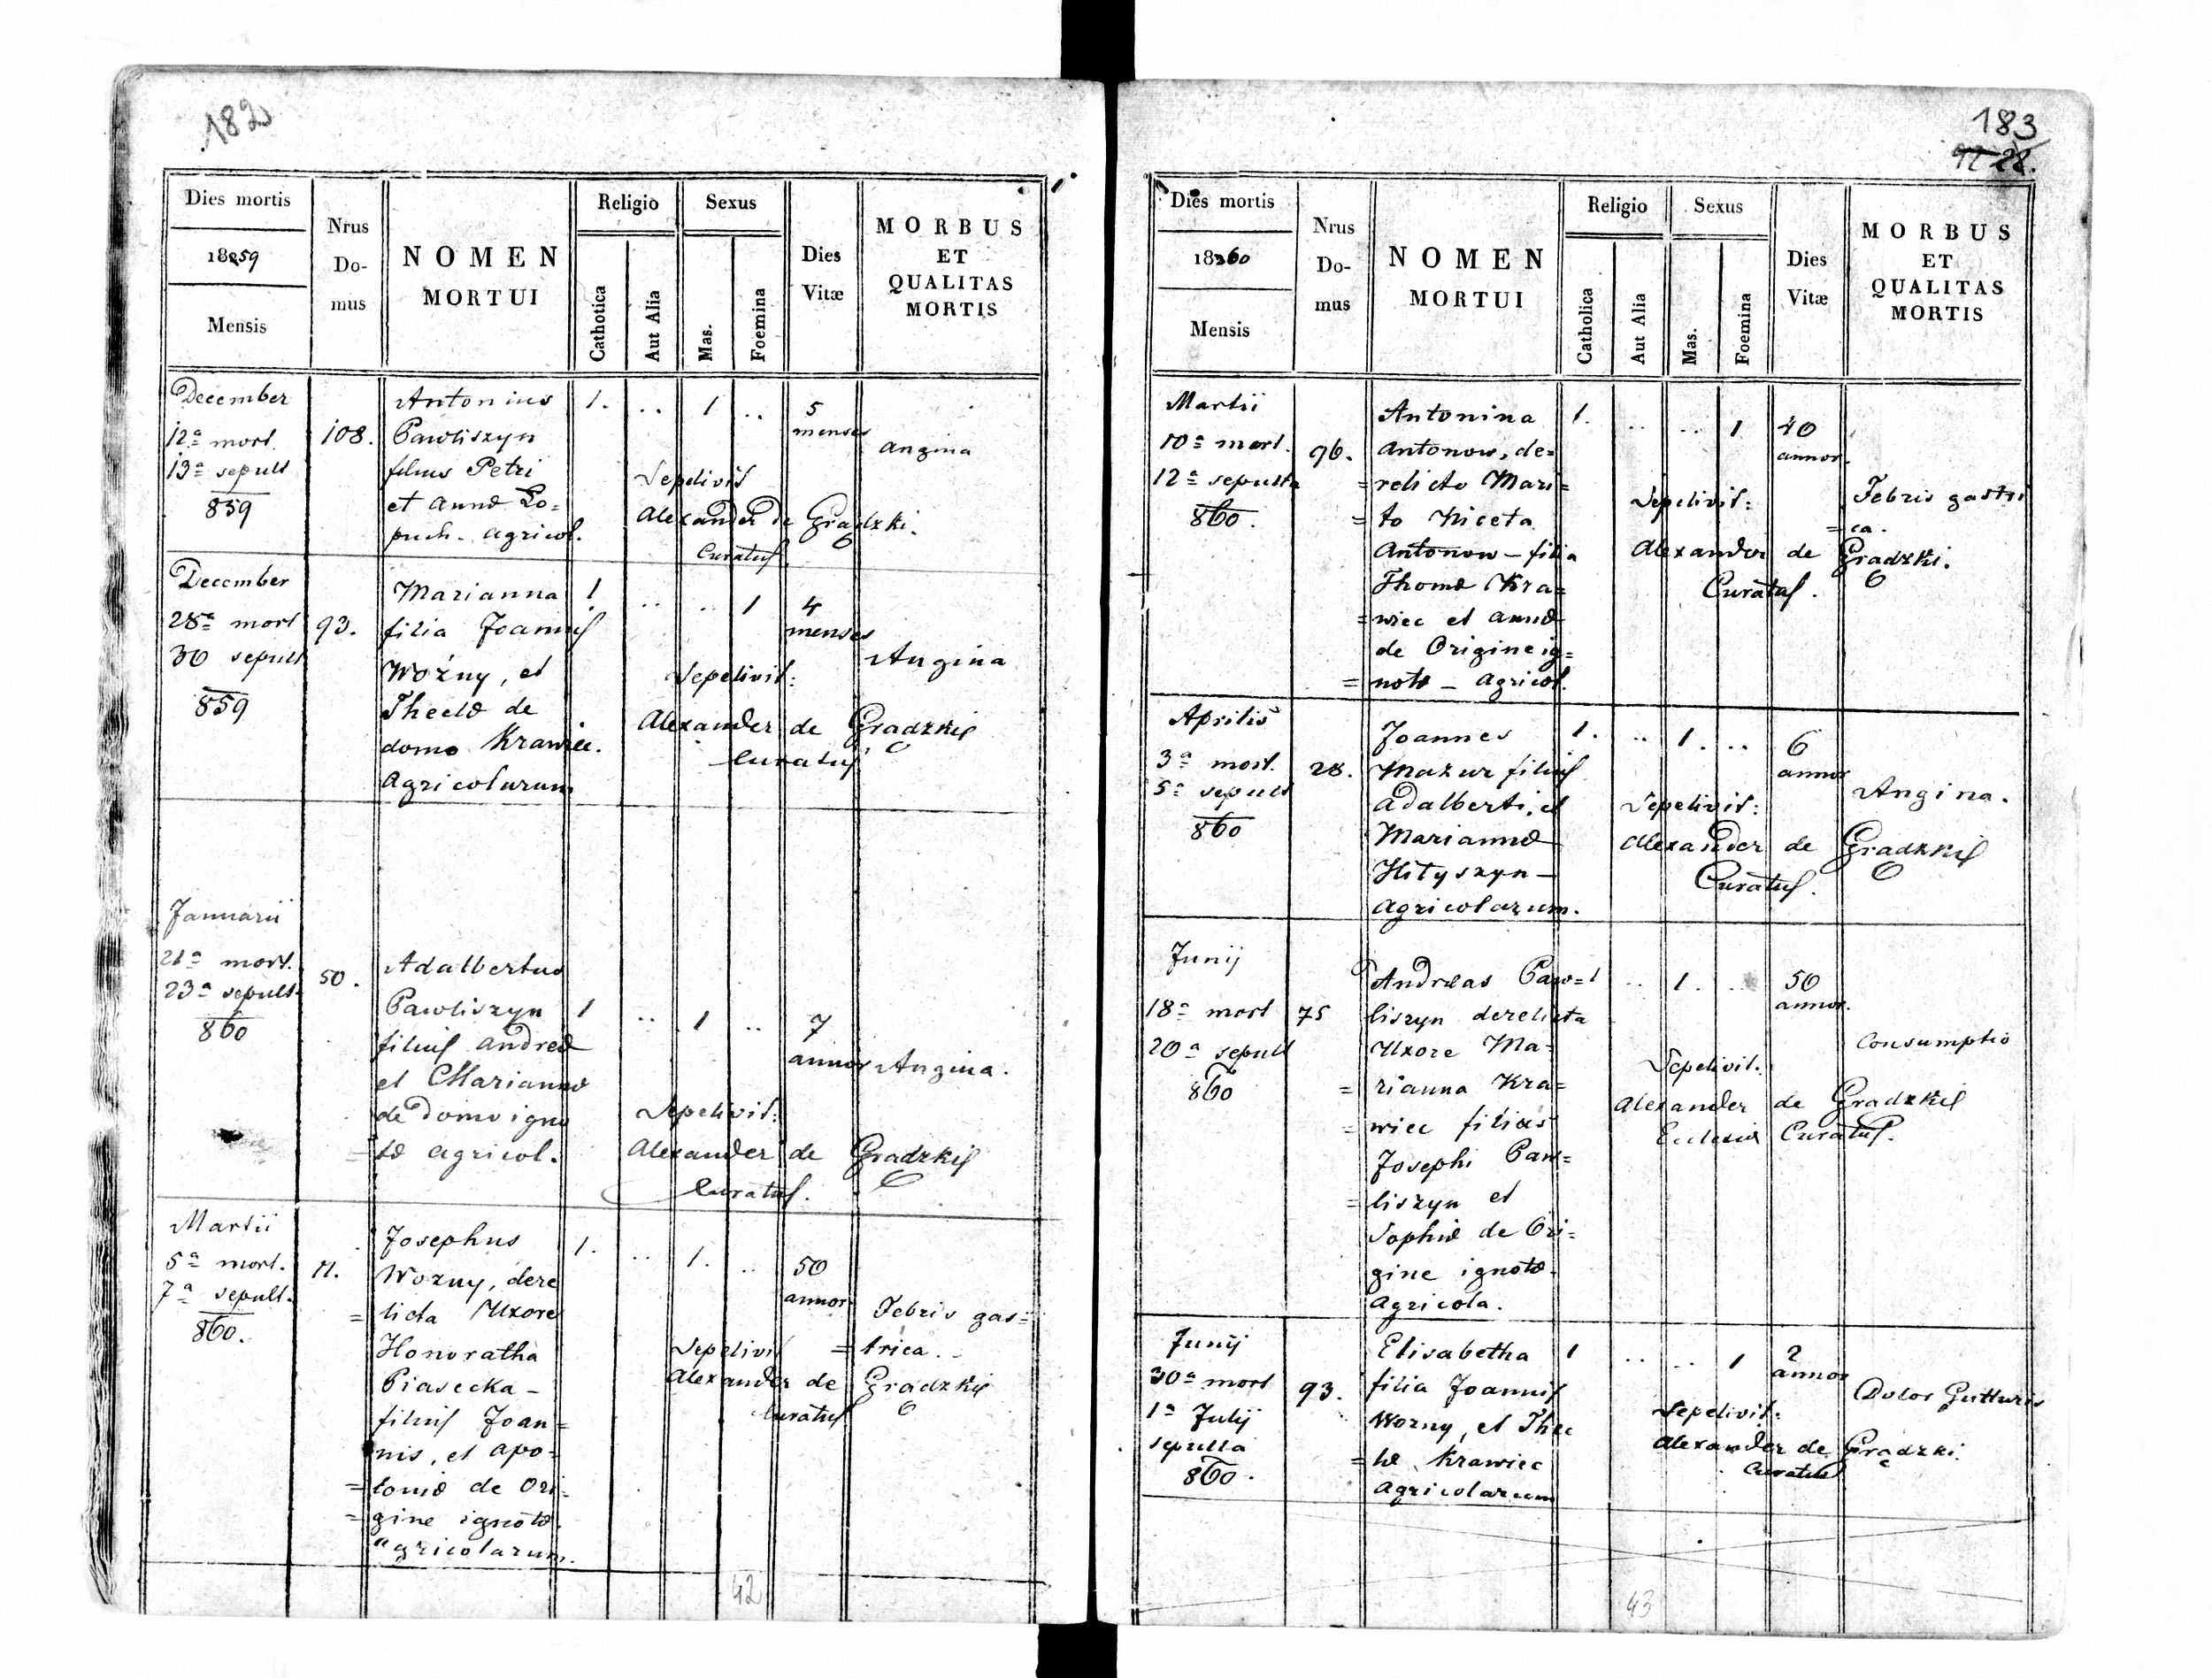 182
Dies mortis
1859
Mensis
Nrus
Do-
mus
NOMEN
MORTUI
Religio
Cathotica
Aut Alia
Sexus
Mas.
Foemina
Dies
Vitæ
MORBUS
ET
QUALITAS
MORTIS
December
12ª mort.
13ª sepult
859
108.
Antonius
Pawliszyn
filius Petri
et Annæ Lo=
puch. agricol.
1. .. 1 ..
5
menses
angina
Sepelivit
Alexander de Gradzki.
Curatus
December
28ª mort
30 sepult
859
93.
Marianna
filia Joannis
Woźny, et
Theclæ de
domo Krawiec.
Agricolarum
1 .. .. 1
4
menses
Angina
Sepelivit:
Alexander de Gradzkis
Curatus
Januarii
21ª mort.
23ª sepult.
860
50.
Adalbertus
Pawliszyn
filius Andreæ
et Mariannæ
de domo igno
=tæ agricol.
1 .. 1 ..
7
annor
Angina.
Sepelivit:
Alexander de Gradzkis
Curatus.
Martii
5ª mort.
7ª sepult.
860.
11.
Josephus
Wozny, dere
=licta Uxore
Honoratha
Piasecka –
filius Joan=
nis, et Apo=
=loniæ de Ori=
=gine ignotæ.
agricolarum.
1. .. 1. ..
50
annor
Febris gas=
=trica.
Sepelivit
Alexander de Gradzkis
Curatus
42
183
28.
Dies mortis
1860
Mensis
Nrus
Do-
mus
NOMEN
MORTUI
Religio
Catholica
Aut Alia
Sexus
Mas.
Foemina
Dies
Vitæ
MORBUS
ET
QUALITAS
MORTIS
Martii
10ª mort.
12ª sepulta
860.
96.
Antonina
Antonow, de=
=relicto Mari=
=to Niceta
Antonow – filia
Thomæ Kra=
=wiec et Annæ
de Origine ig=
=notæ – agricol.
1. .. .. 1
40
annor.
Febris gastri
=ca.
Sepelivit:
Alexander de Gradzki.
Curatus.
Aprilis
3ª mort.
5ª sepult
860
28.
Joannes
Mazur filius
Adalberti, et
Mariannæ
Hityszyn –
agricolarum.
1. .. 1. ..
6
annor
Angina.
Sepelivit:
Alexander de Gradzkis
Curatus.
Junij
18ª mort
20ª sepult
860
75
Andreas Paw=
liszyn derelicta
Uxore Ma=
=rianna Kra=
=wiec filius
Josephi Paw=
=liszyn et
Sophiæ de Ori=
gine ignotæ.
Agricola.
1 .. 1. ..
50
annor.
Consumptio
Sepelivit:
Alexander de Gradzkis
Ecclesiæ Curatus.
Junij
30ª mort
1ª Julij
sepulta
860.
93.
Elisabetha
filia Joannis
Wozny, et Thec
=læ Krawiec
Agricolarum
1 .. .. 1
2
annor
Dolor Gutturis
Sepelivit:
Alexander de Gradzki.
Curatus
43